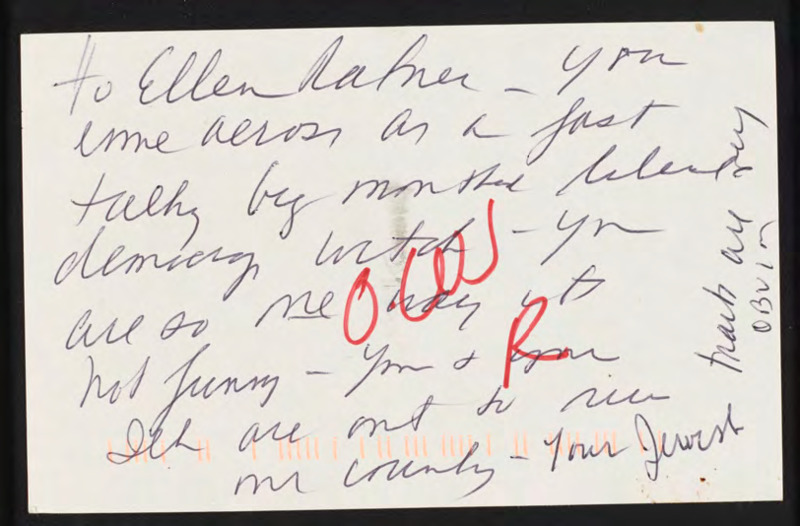 To Ellen Ratner – you
come across as a fast
talkg big mouthed liberal
witch – you
are so one way its
not funny – you & your
Ilk are out to ruin
our country – Your Jewish
traits are very
R